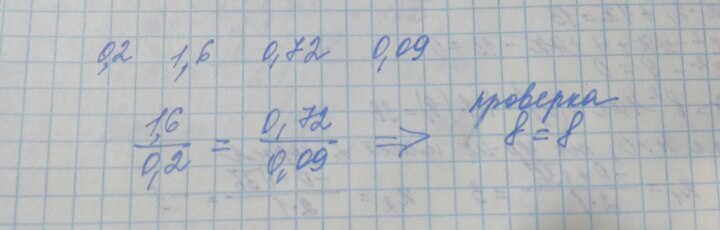 0,2 1,6 0,72 0,09
1,6/0,2 = 0,72/0,09 => проверка
8 = 8